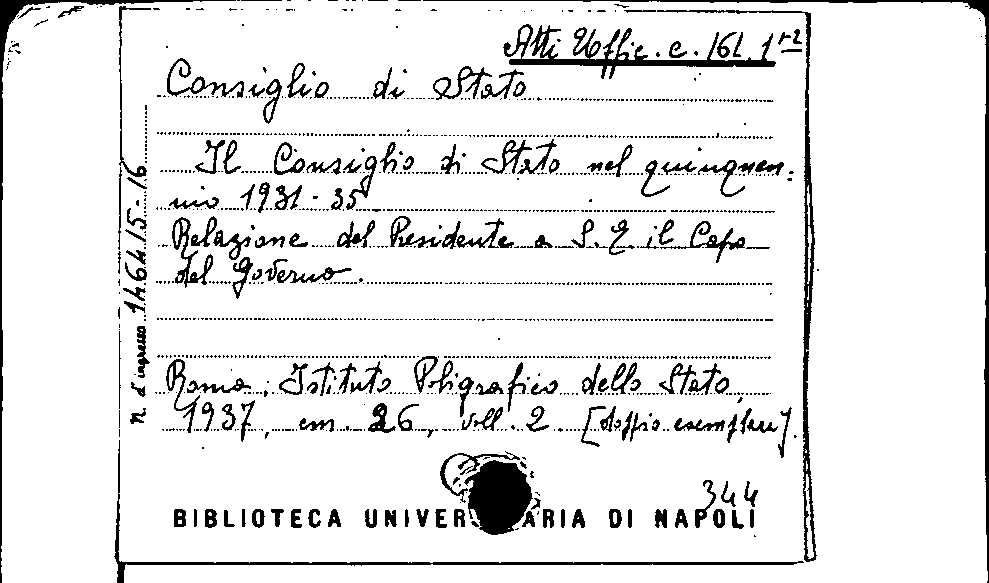 Atti Uffic. c. 161. 1 r-2
Consiglio di Stato
Il Consiglio di Stato nel quinquen=
nio 1931-35
Relazione del Presidente a S. E. il Capo
del Governo.
Roma, Istituto Poligrafico dello Stato,
1937, cm. 26, voll. 2. [doppio esemplare].
344
BIBLIOTECA UNIVER ARIA DI NAPOLI
n. d'ingresso 146415-16